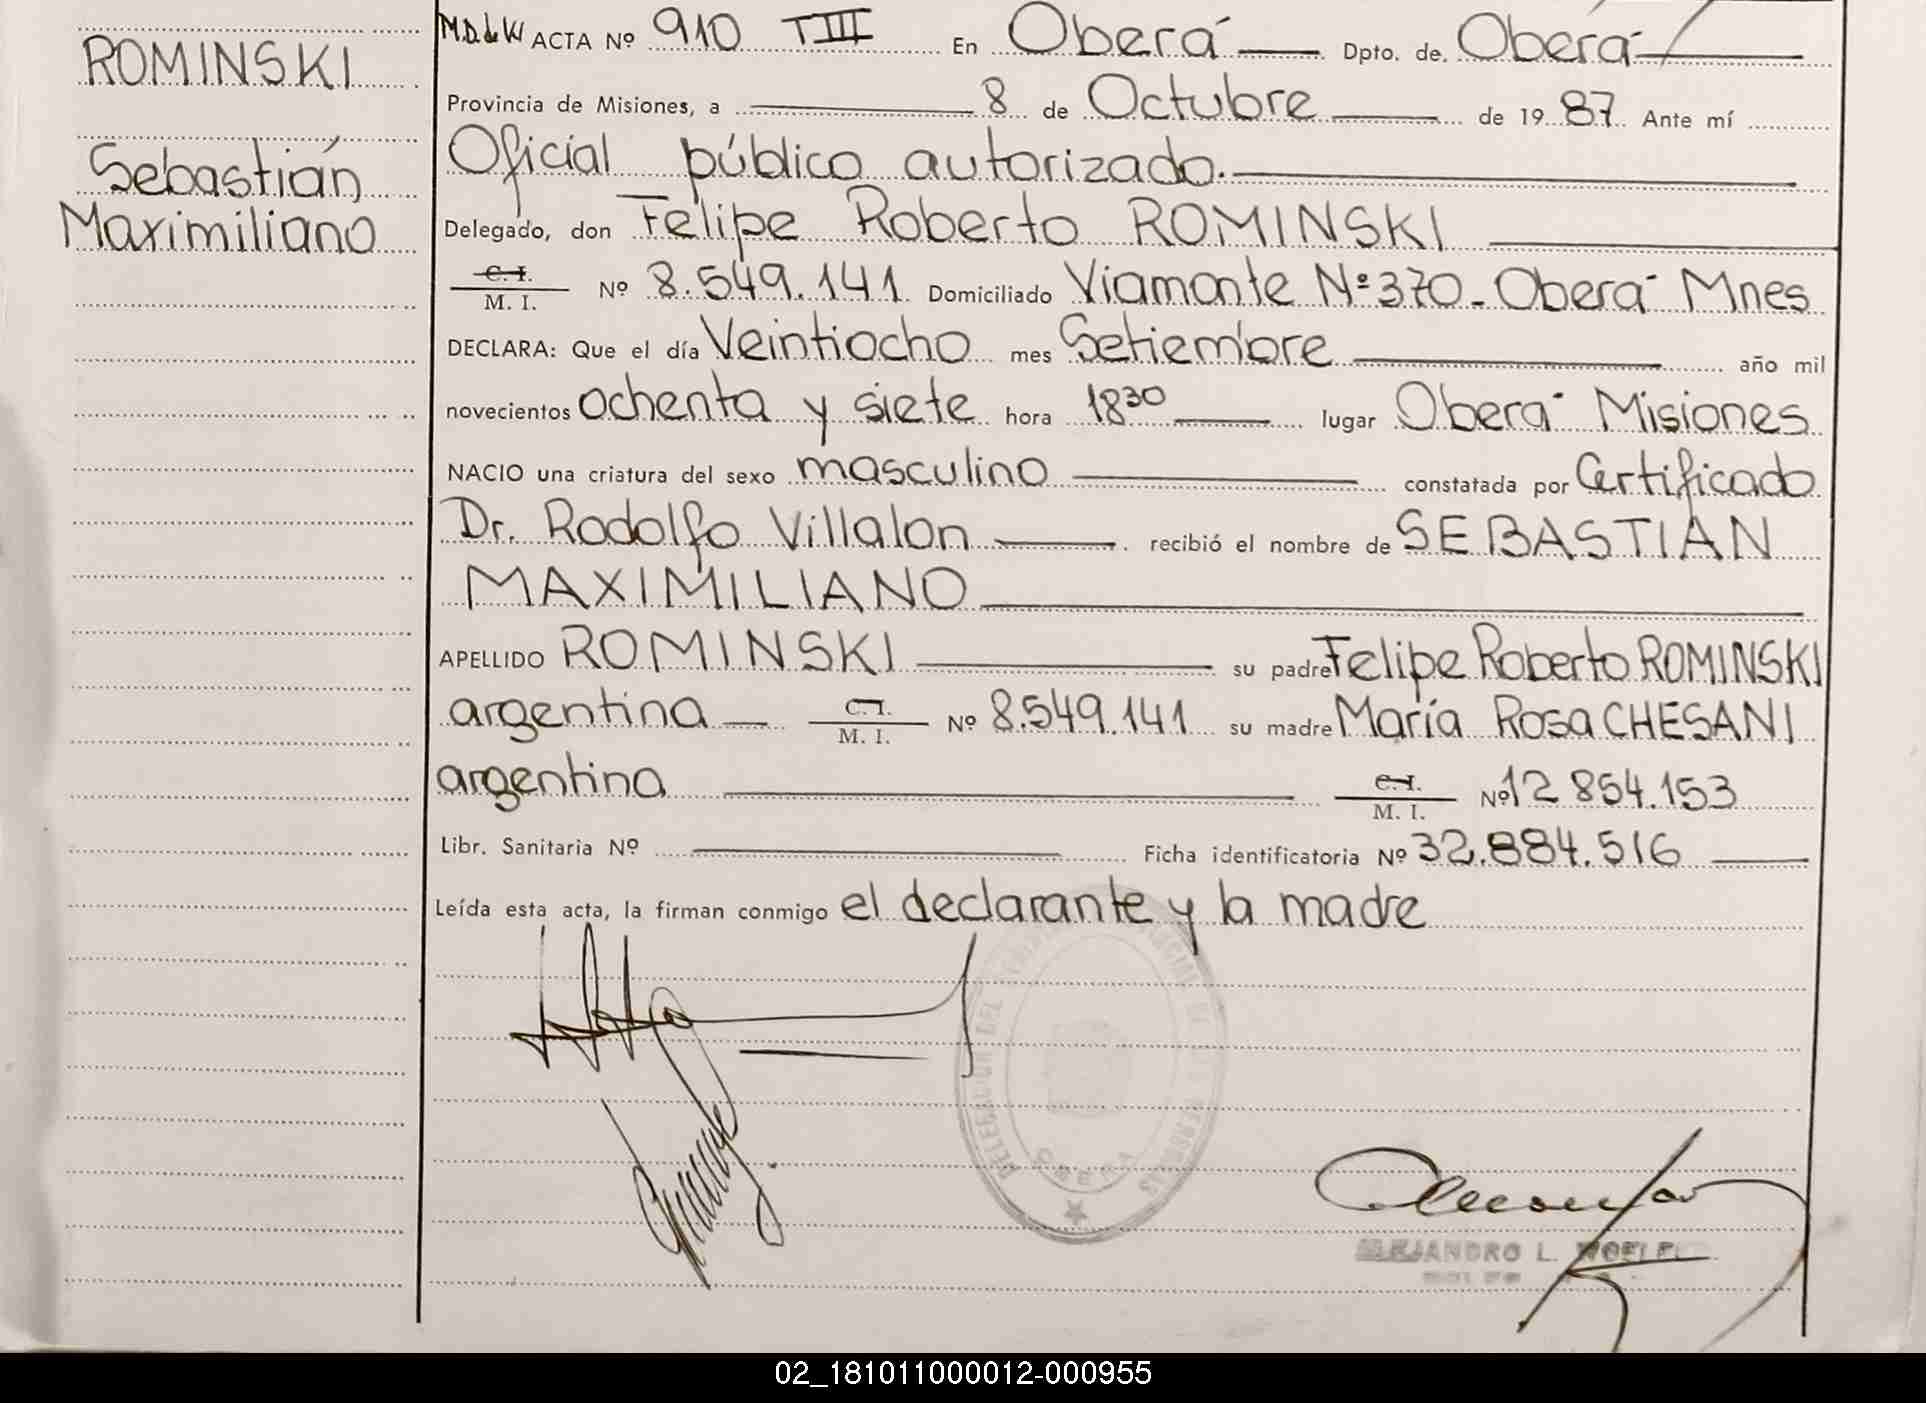 ROMINSKI
Sebastián
Maximiliano
M.D.d.W ACTA Nº 910 TIII En Oberá Dpto. de Oberá
Provincia de Misiones, a 8 de Octubre de 1987 Ante mí
Oficial público autorizado.
Delegado, don Felipe Roberto ROMINSKI
C.I. M. I. Nº 8.549.141 Domiciliado Viamonte Nº 370 - Oberá Mnes
DECLARA: Que el día Veintiocho mes Setiembre año mil
novecientos ochenta y siete hora 18 30 lugar Oberá Misiones
NACIO una criatura del sexo masculino constatada por Certificado
Dr. Rodolfo Villalon recibió el nombre de SEBASTIÁN
MAXIMILIANO
APELLIDO ROMINSKI su padre Felipe Roberto ROMINSKI
argentina C.I. M. I. Nº 8.549.141 su madre María Rosa CHESANI
argentina C.I. M. I. Nº 12 854.153
Libr. Sanitaria Nº Ficha identificatoria Nº 32.884.516
Leída esta acta, la firman conmigo el declarante y la madre
ALEJANDRO L.
02_181011000012-000955